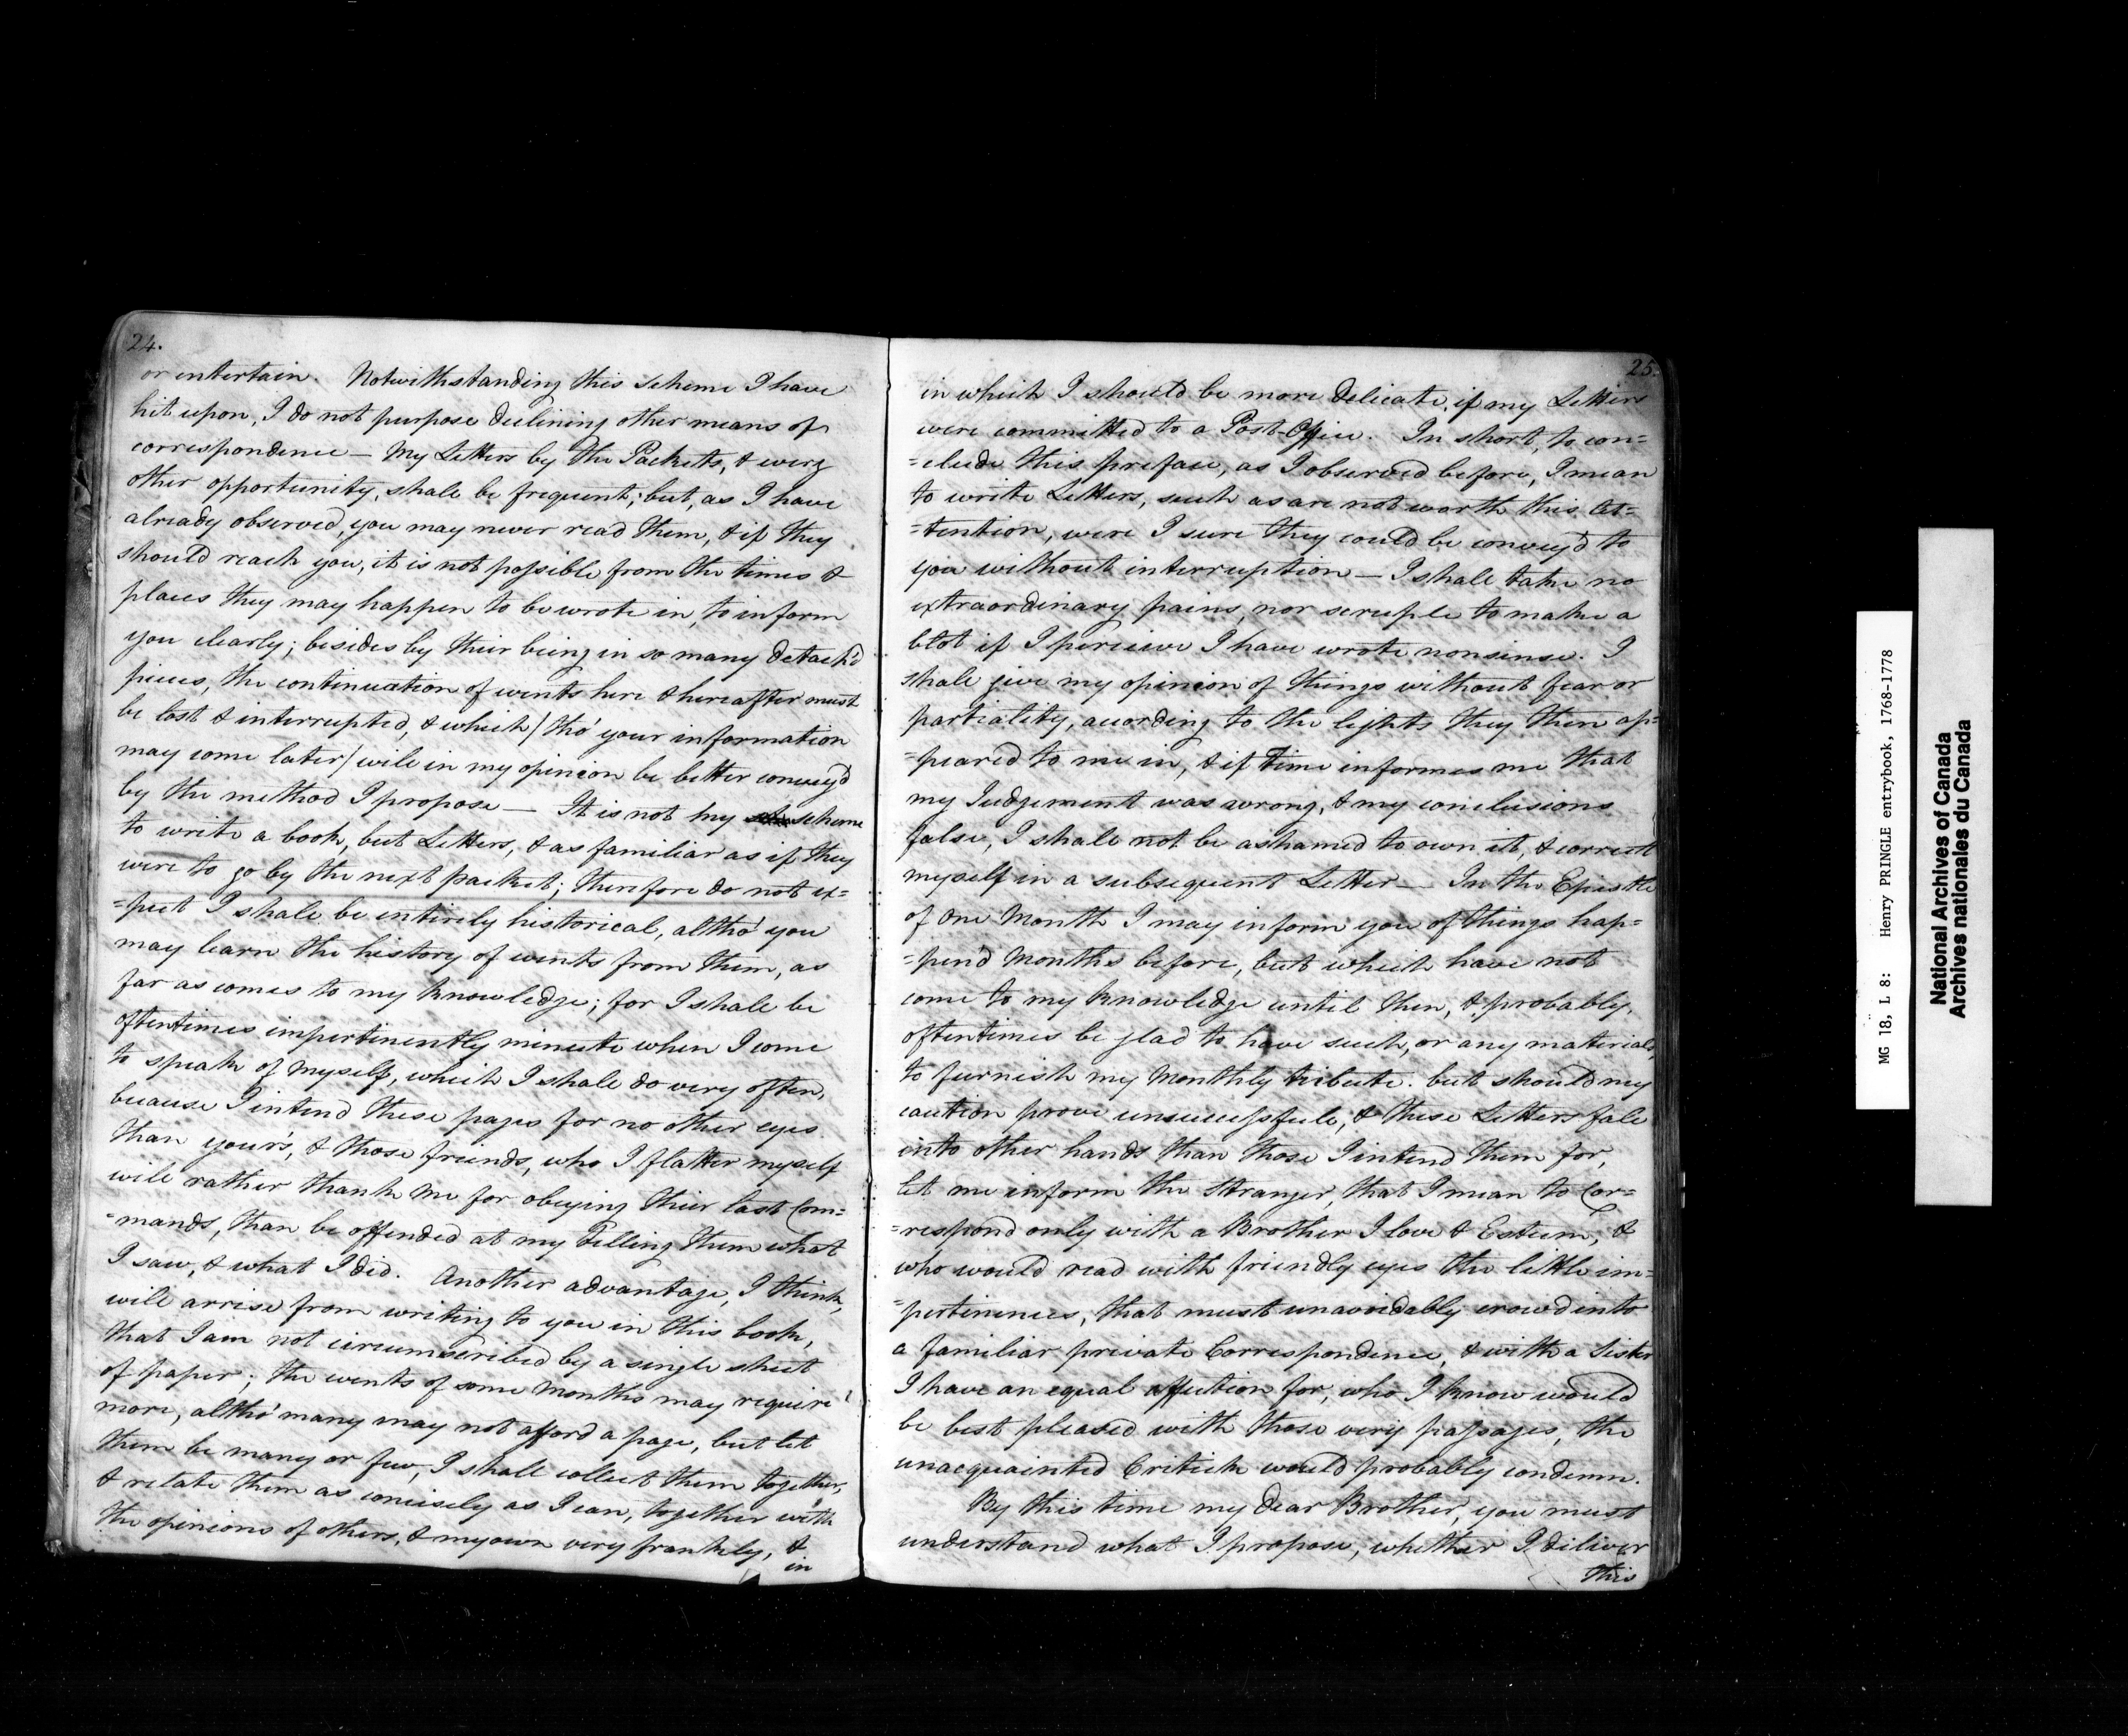 24.
or entertain. Notwithstanding this scheme I have
hit upon, I do not purpose declining other means of
correspondence — My Letters by the Packets, & every
other opportunity, shall be frequent; but, as I have
already observed, you may never read them, & if they
should reach you, it is not possible from the times &
places they may happen to be wrote in, to inform
you clearly; besides by their being in so many detach'd
pieces, the continuation of events here & hereafter must
be lost & interrupted, & which / tho' your information
may come later / will in my opinion be better convey'd
by the method I propose — It is not my scheme
to write a book, but Letters, & as familiar as if they
were to go by the next packet; therefore do not ex=
=pect I shall be entirely historical, altho' you
may learn the history of events from them, as
far as comes to my knowledge; for I shall be
oftentimes impertinently minute when I come
to speak of myself, which I shall do very often,
because I intend these pages for no other eyes
than your's, & those friends, who I flatter myself
will rather thank me for obeying their last Com=
=mands, than be offended at my Telling them what
I saw, & what I did. Another advantage, I think,
will arrise from writing to you in this book,
that I am not circumscribed by a single sheet
of paper; the events of some Months may require
more, altho' many may not afford a page, but let
them be many or few, I shall collect them together,
& relate them as concisely as I can, together with
the opinions of others, & my own very frankly, &
in
25.
in which I should be more delicate, if my Letters
were committed to a Post-Office. In short, to con=
=clude this preface, as I observed before, I mean
to write Letters, such as are not worth this at=
=tention, were I sure they could be convey'd to
you without interruption — I shall take no
extraordinary pains, nor scruple to make a
blot if I perceive I have wrote nonsense. I
shall give my opinion of things without fear or
partiality, according to the lights they then ap=
=peared to me in, & if Time informes me that
my Judgement was wrong, & my conclusions
false, I shall not be ashamed to own it, & correct
myself in a subsequent Letter — In the Epistle
of One Month I may inform you of things hap=
=pend Months before, but which have not
come to my knowledge until then, & probably,
oftentimes be glad to have such, or any materials,
to furnish my Monthly tribute. but should my
caution prove unsuccessfull, & these Letters fall
into other hands than those I intend them for,
let me inform the Stranger, that I mean to Cor=
=respond only with a Brother I love & Esteem, &
who would read with friendly eyes the little im=
=pertinences, that must unavoidably crowd into
a familiar private Correspondence, & with a Sister
I have an equal affection for, who I know would
be best pleased with those very passages, the
unacquainted Critick would probably condemn.
By this time my dear Brother, you must
understand what I propose, whether I diliver
this
MG 18, L 8: Henry PRINGLE entrybook, 1768-1778
National Archives of Canada
Archives nationales du Canada